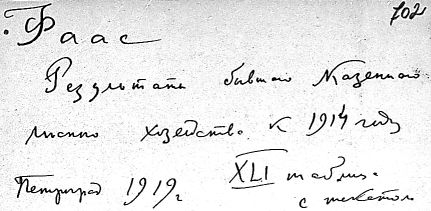 702
Фаас
Результаты бывшаго Казеннаго
лѣсного хозяйства к 1914 году
Петроград 1919 г. XLI таблиц.
с текстом